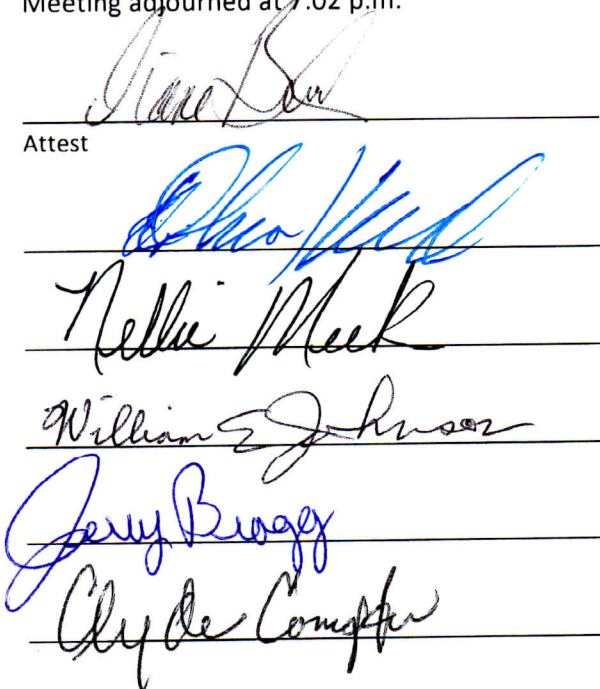 Meeting adjourned at 7:02 p.m.
Diane
Attest
Nellie Meek
William E Johnson
Jerry Bragg
Clyde